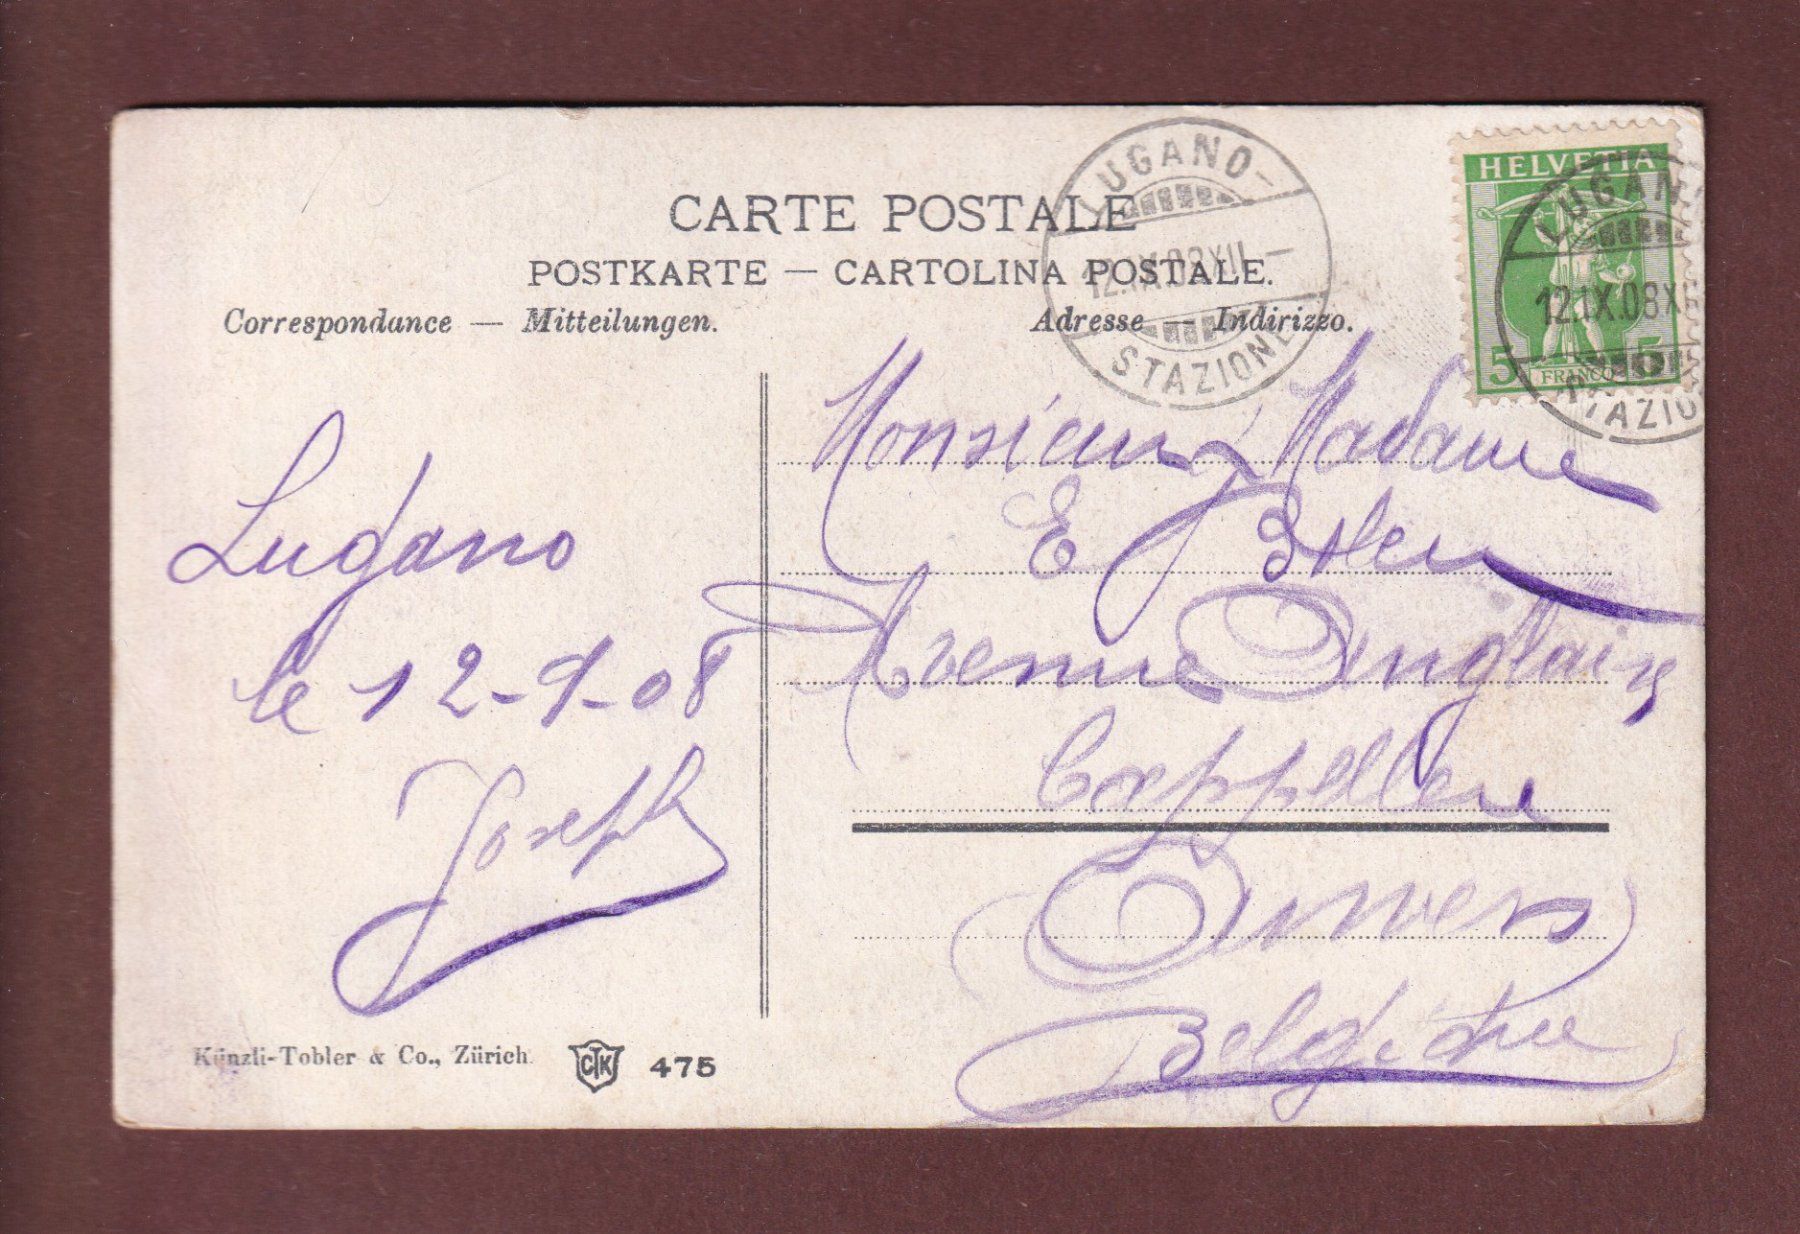 CARTE POSTALE
POSTKARTE — CARTOLINA POSTALE.
Correspondance — Mitteilungen.
Adresse — Indirizzo.
LUGANO-
12.IX.08 XII-
STAZIONE
HELVETIA
5 FRANCO 5
LUGAN
12.IX.08 X
STAZIO
Lugano
le 12-9-08
Joseph
Monsieur Madame
E
Avenue
Cappellen
Anvers
Belgique
Künzli-Tobler & Co., Zürich.
CTK
475